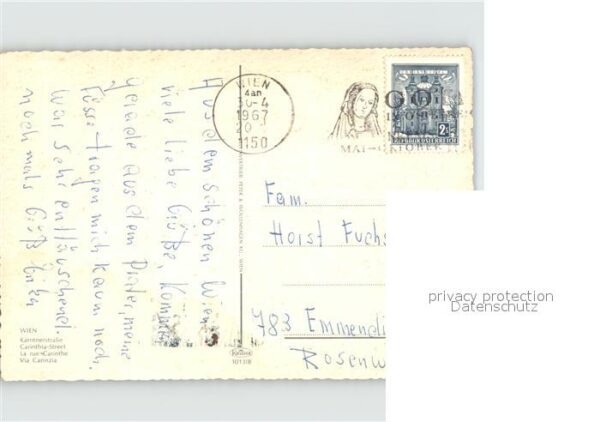 Aus dem schönen Wien
viele liebe Grüße, Komme
gerade aus dem Prater, meine
Füsse tragen mich kaum noch.
War sehr enttäuschend.
nochmals Grüß
WIEN
4an
30-4
1967
20
1150
GO
MAI-OKTOBER
2
Fam.
Horst Fuchs
783 Emmendi
Rosenw
WIEN
Kärntnerstraße
Carinthia-Street
La rue Carinthe
Via Carinzia
privacy protection
Datenschutz